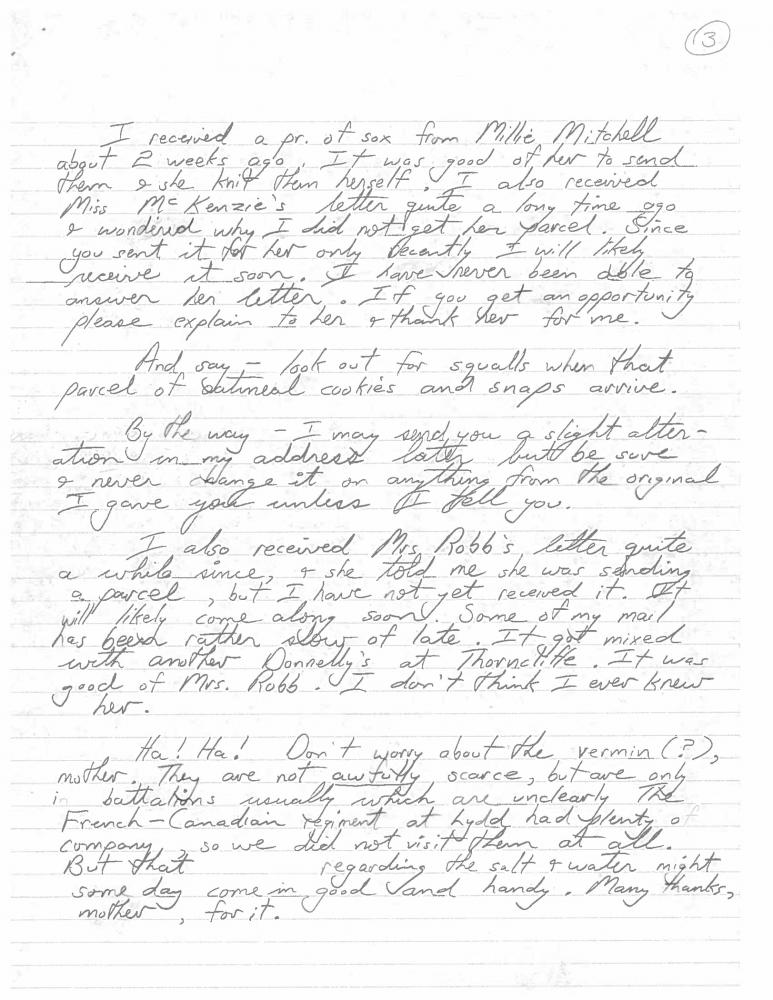 13
I received a pr. of sox from Millie Mitchell
about 2 weeks ago. It was good of her to send
them & she knit them herself. I also received
Miss McKenzie's letter quite a long time ago
& wondered why I did not get her parcel. Since
you sent it for her only recently I will likely
receive it soon. I have never been able to
answer her letter. If you get an opportunity
please explain to her & thank her for me.
And say – look out for squalls when that
parcel of oatmeal cookies and snaps arrive.
By the way – I may send you a slight alter-
ation in my address later but be sure
& never change it or anything from the original
I gave you unless I tell you.
I also received Mrs. Robb's letter quite
a while since, & she told me she was sending
a parcel, but I have not yet received it. It
will likely come along soon. Some of my mail
has been rather slow of late. It got mixed
with another Donnelly's at Thorncliffe. It was
good of Mrs. Robb. I don't think I ever knew
her.
Ha! Ha! Don't worry about the vermin (?),
mother. They are not awfully scarce, but are only
in battalions usually which are unclearly The
French-Canadian regiment at Lydd had plenty of
company, so we did not visit them at all.
But that regarding the salt & water might
some day come in good and handy. Many thanks,
mother, for it.